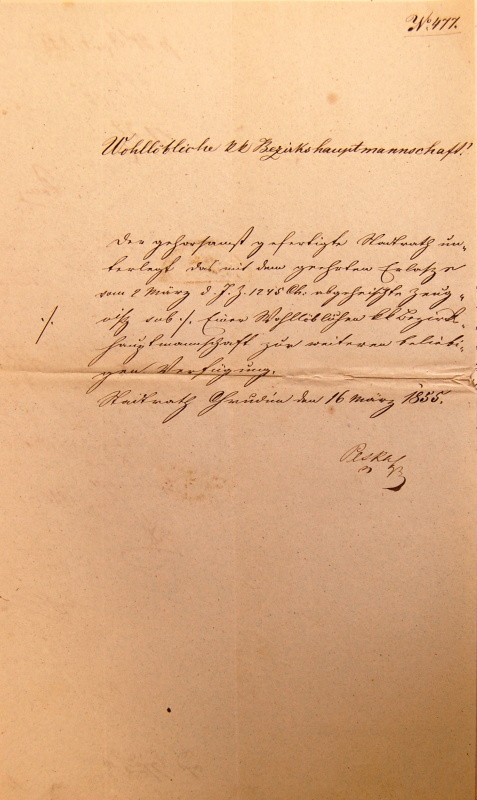 No 477.
Wohllöbliche kk Bezirkshauptmannschaft!
Der gehorsamst gefertigte Stadtrath un-
terlegt das mit dem geehrten Erlasse
vom 2 März d. J. Z. 1245 abgeheischte Zeug-
./. niß sub ./. Einer Wohllöblichen kk Bezirks-
hauptmannschaft zur weiteren beliebi-
gen Verfügung.
Stadtrath Chrudim den 16 März 1855.